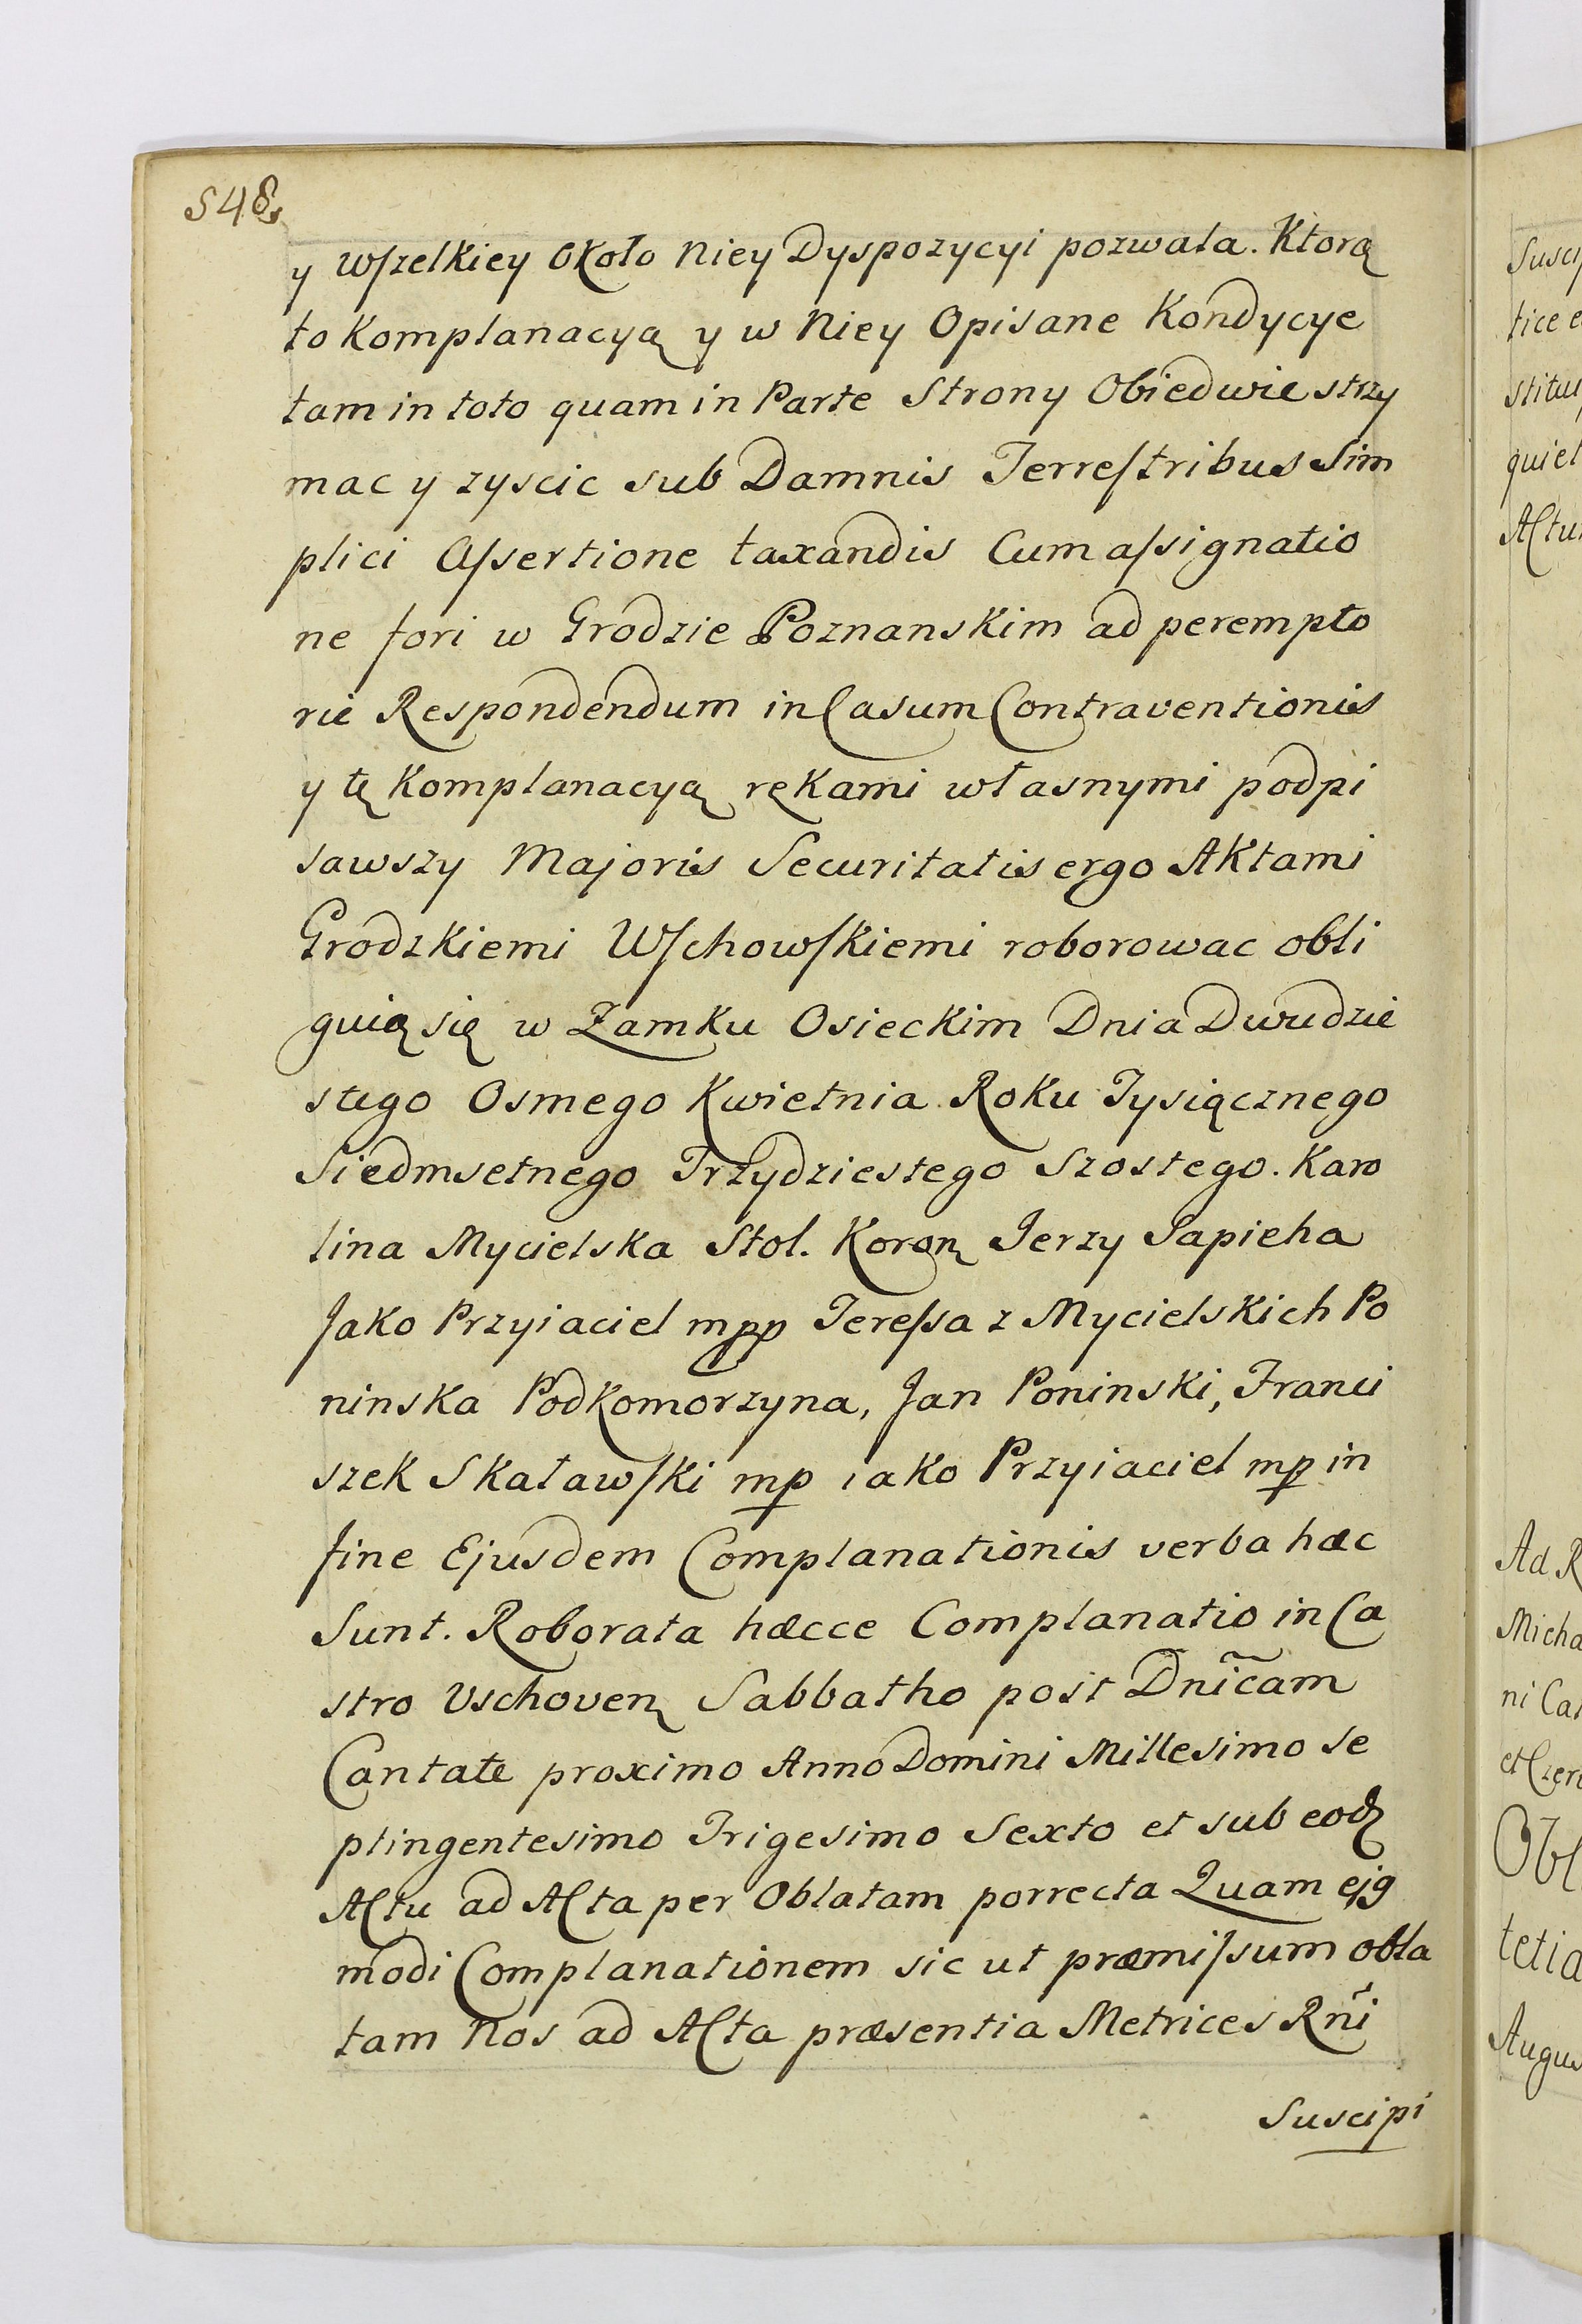 548
y wſzelkiey Około Niey Dyspozycyi pozwala. Ktorą
to Komplanacyą y w Niey Opisane Kondycye
tam in toto quam in Parte Strony Obiedwie strzy
mac y zyscic sub Damnis Terreſtribus Sim
plici Aſsertione taxandis Cum aſsignatio
ne fori w Grodzie Poznanskim ad perempto
rie Respondendum in Casum Contraventionis
y tę Komplanacyą rękami własnymi podpi
sawszy Majoris Securitatis ergo Aktami
Grodzkiemi Wſchowſkiemi roborowac obli
guią się w Zamku Osieckim Dnia Dwudzie
stego Osmego Kwietnia Roku Tysiącznego
Siedmsetnego Trzydziestego Szostego. Karo
lina Mycielska Stol. Koron Jerzy Sapieha
Jako Przyiaciel mpp Tereſsa z Mycielskich Po
ninska Podkomorzyna, Jan Poninski, Franci
szek Skaławſki mp iako Przyiaciel mp in
fine Ejusdem Complanationis verba hæc
Sunt. Roborata hæcce Complanatio in Ca
stro Vschoven Sabbatho post Dnĩcam
Cantate proximo Anno Domini Millesimo se
ptingentesimo Trigesimo Sexto et sub eodꝫ
Actu ad Acta per Oblatam porrecta Quam ejꝯ
modi Complanationem sic ut præmiſsum obla
tam Nos ad Acta præsentia Metrices Rñi
Suscipi
tice e
stitu
quiet
Actu
Ad R
Micha
ni Cas
Obl
tetia
Augus